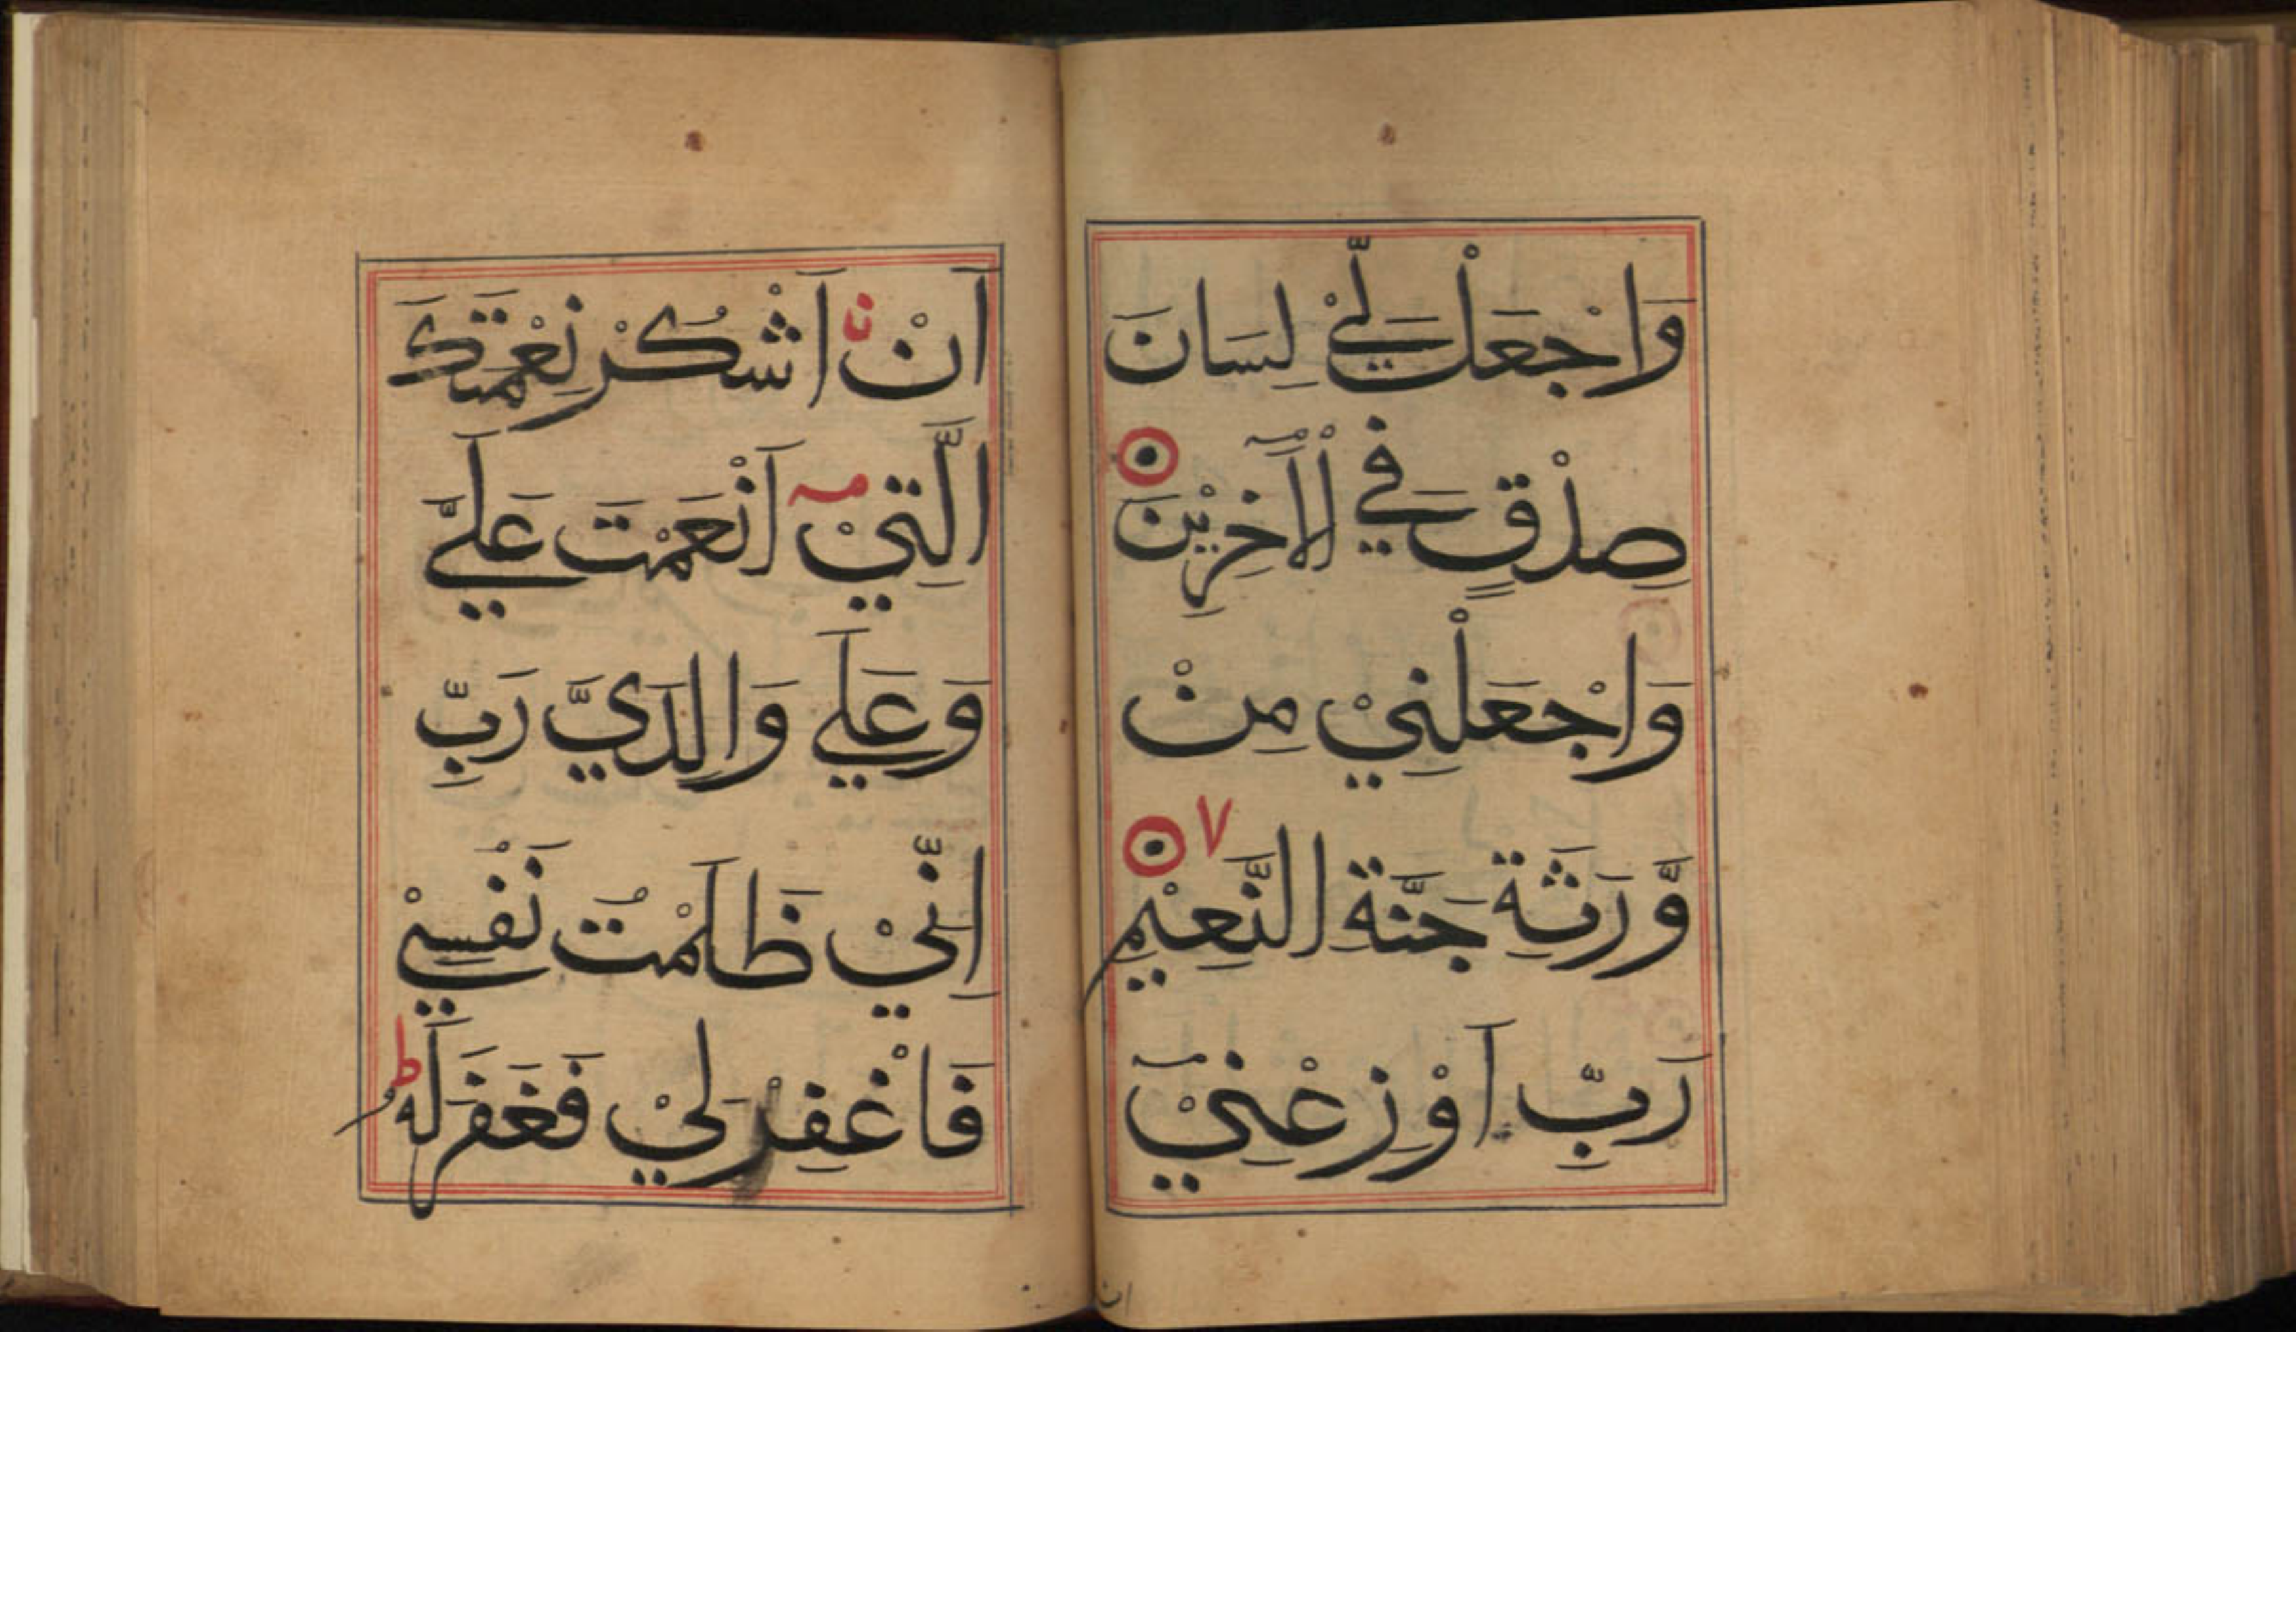 وَاجْعَلْ لِّيْ لِسَانَ
صِدْقٍ فِي الْاٰخِرِيْنَ
وَاجْعَلْنِيْ مِنْ
وَّرَثَةِ جَنَّةِ النَّعِيْمِ ٧
رَبِّ اَوْزِعْنِيْٓ
ان
اَنْ اَشْكُرَ نِعْمَتَكَ
الَّتِيْٓ اَنْعَمْتَ عَلَيَّ
وَعَلٰي وَالِدَيَّ رَبِّ
اِنِّيْ ظَلَمْتُ نَفْسِيْ
فَاغْفِرْ لِيْ فَغَفَرَ لَهٗ ط